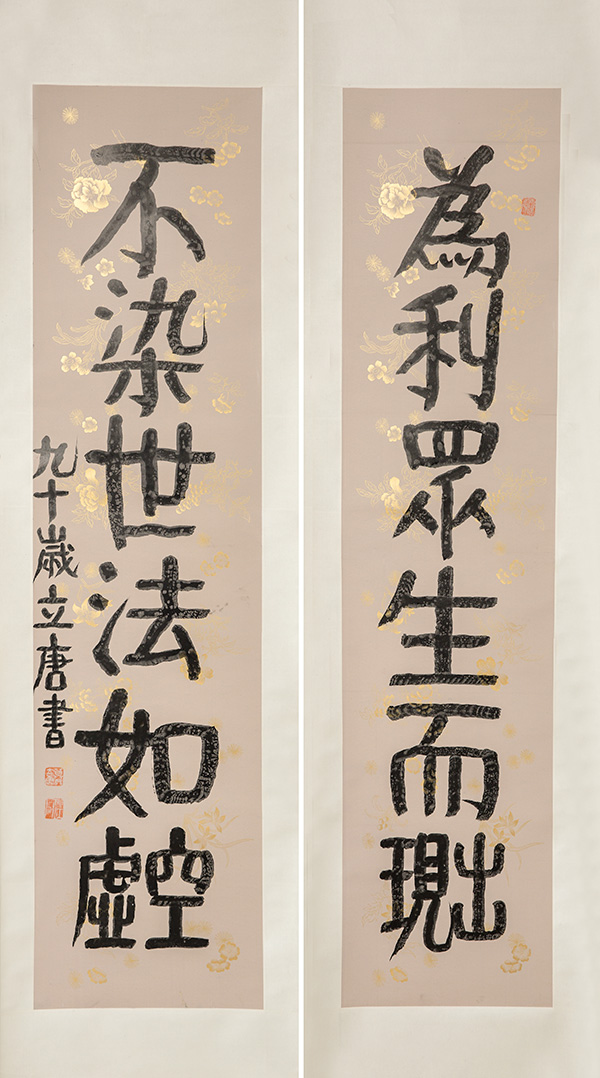 為利眾生而現出
不染世法如虛空
九十歲立唐書